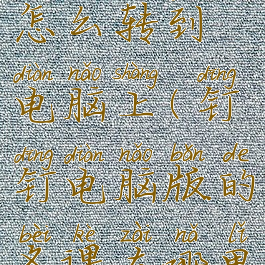 怎么转到
diàn nǎo shàng dīng
电脑上(钉
dīng diàn nǎo bǎn de
钉电脑版的
bèi kè zài nǎ lǐ
备课在哪里